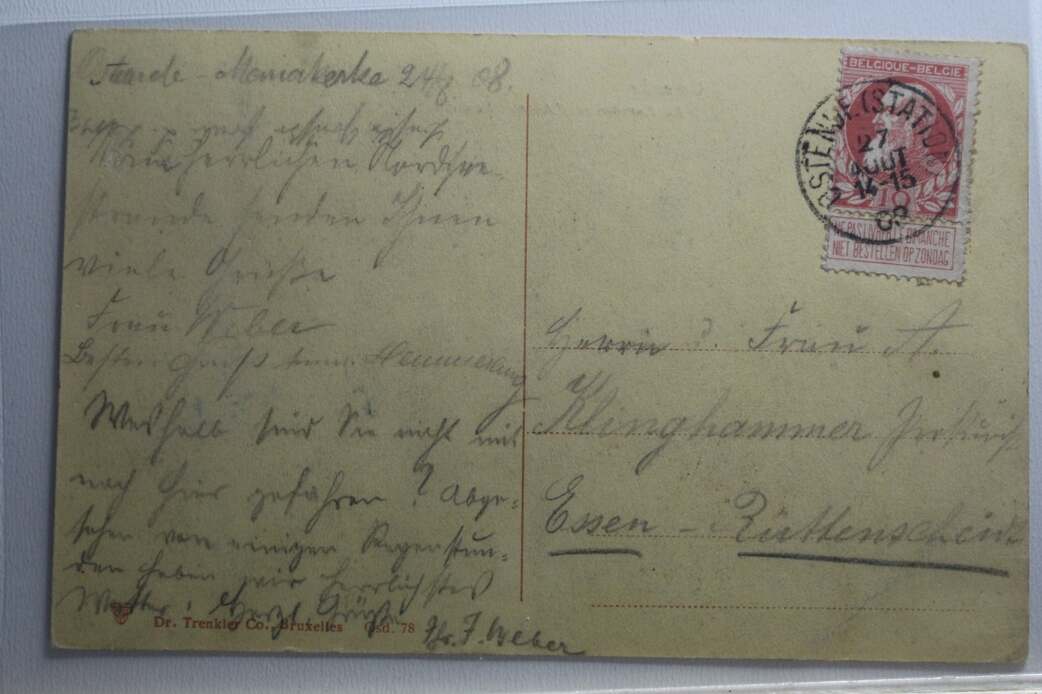 Ostende - Mariakerke 24/8 08.
herrlichen Nordsee-
strande senden Ihnen
viele Grüße
Frau Weber
Besten Gruß
Weshalb sind Sie nicht mit
nach hier gefahren? Abge-
sehen von einigen Regenstun-
den haben wir herrlichstes
Wetter. Herzl. Grüße
F. Weber
Dr. Trenkler Co., Bruxelles Osd. 78
BELGIQUE-BELGIE
10
NE PAS LIVRER LE DIMANCHE
NIET BESTELLEN OP ZONDAG
OSTENDE (STATION)
27
AOUT
14-15
08
Herrn u. Frau A.
Klinghammer
Essen - Rüttenscheid